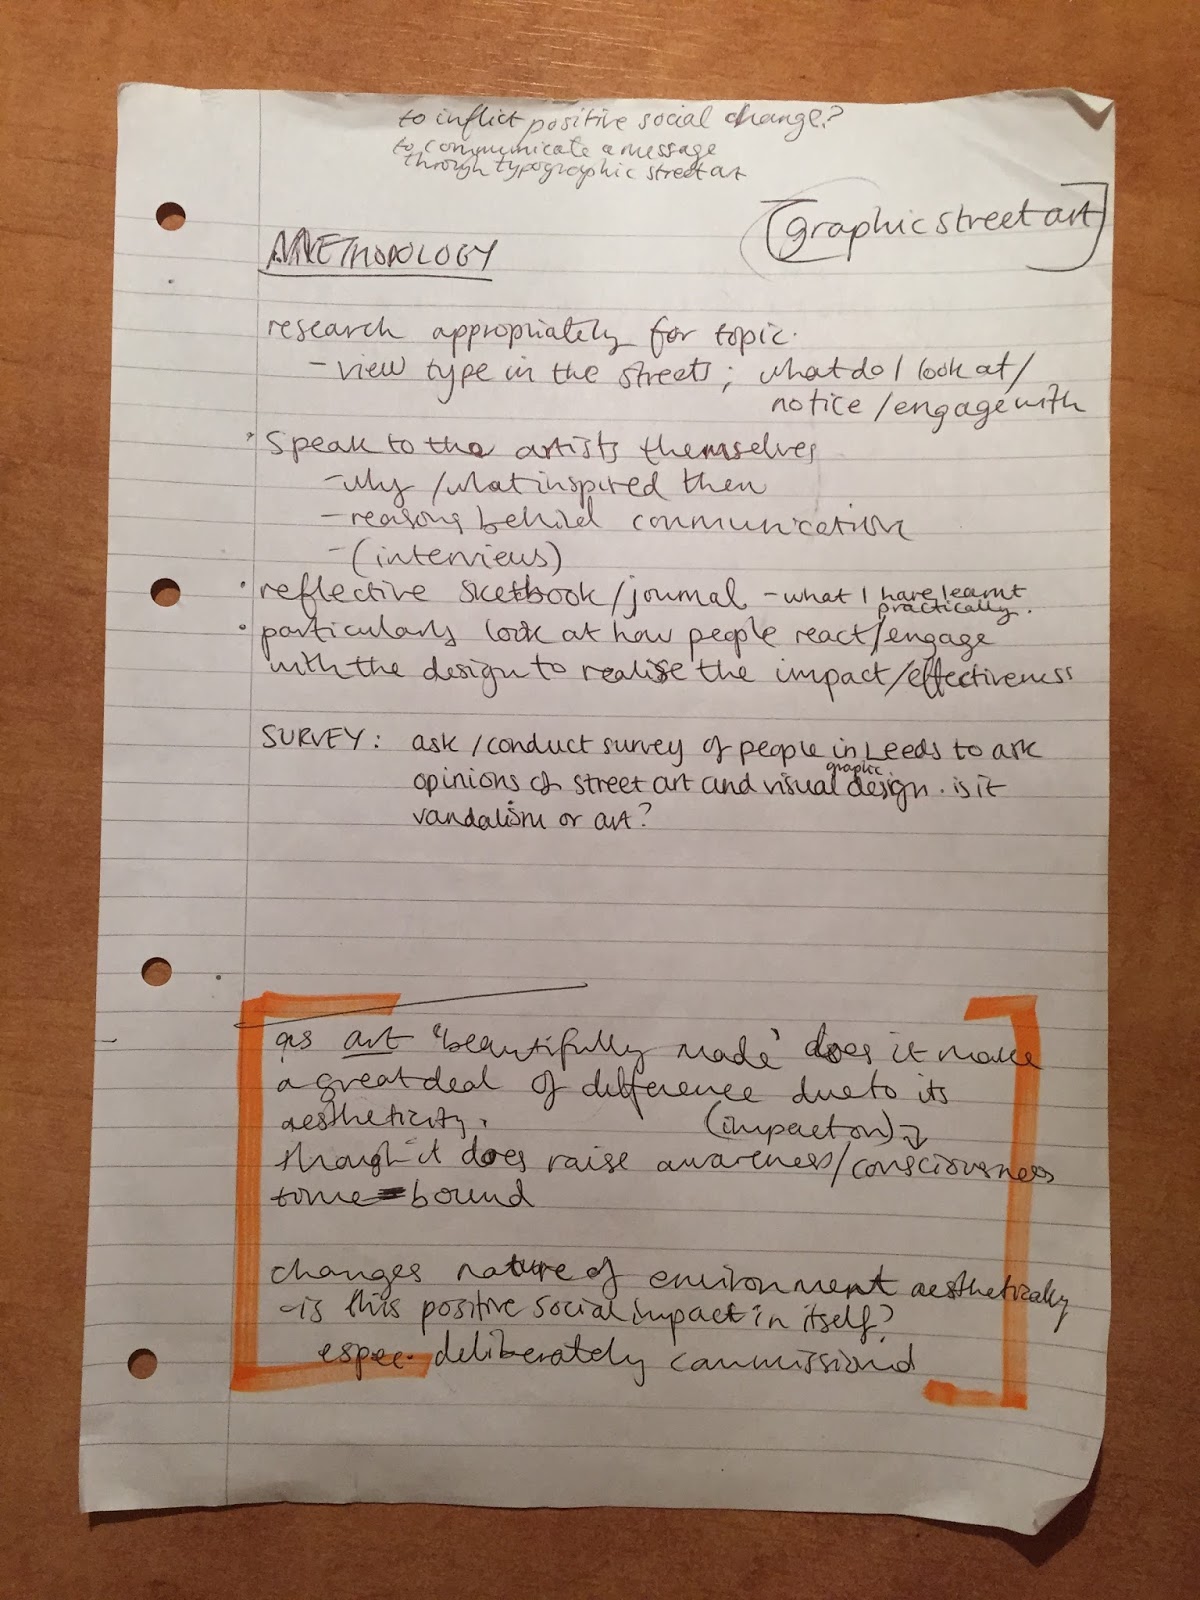 to inflict positive social change?
to communicate a message
through typographic street art
[graphic street art]
METHODOLOGY
research appropriately for topic.
- view type in the streets; what do I look at/
notice/engage with
· speak to the artists themselves
- why/what inspired them
- reasons behind communication
- (interviews)
· reflective sketbook/journal - what I have learnt
practically.
· particularly look at how people react/engage
with the design to realise the impact/effectiveness
SURVEY: ask/conduct survey of people in Leeds to ask
graphic
opinions of street art and visual design. is it
vandalism or art?
as art 'beautifully made' does it make
a great deal of difference due to its
aestheticity.
(impact on)
though it does raise awareness/consciousness
time bound
changes nature of environment aesthetically
- is this positive social impact in itself?
espec. deliberately commissiond